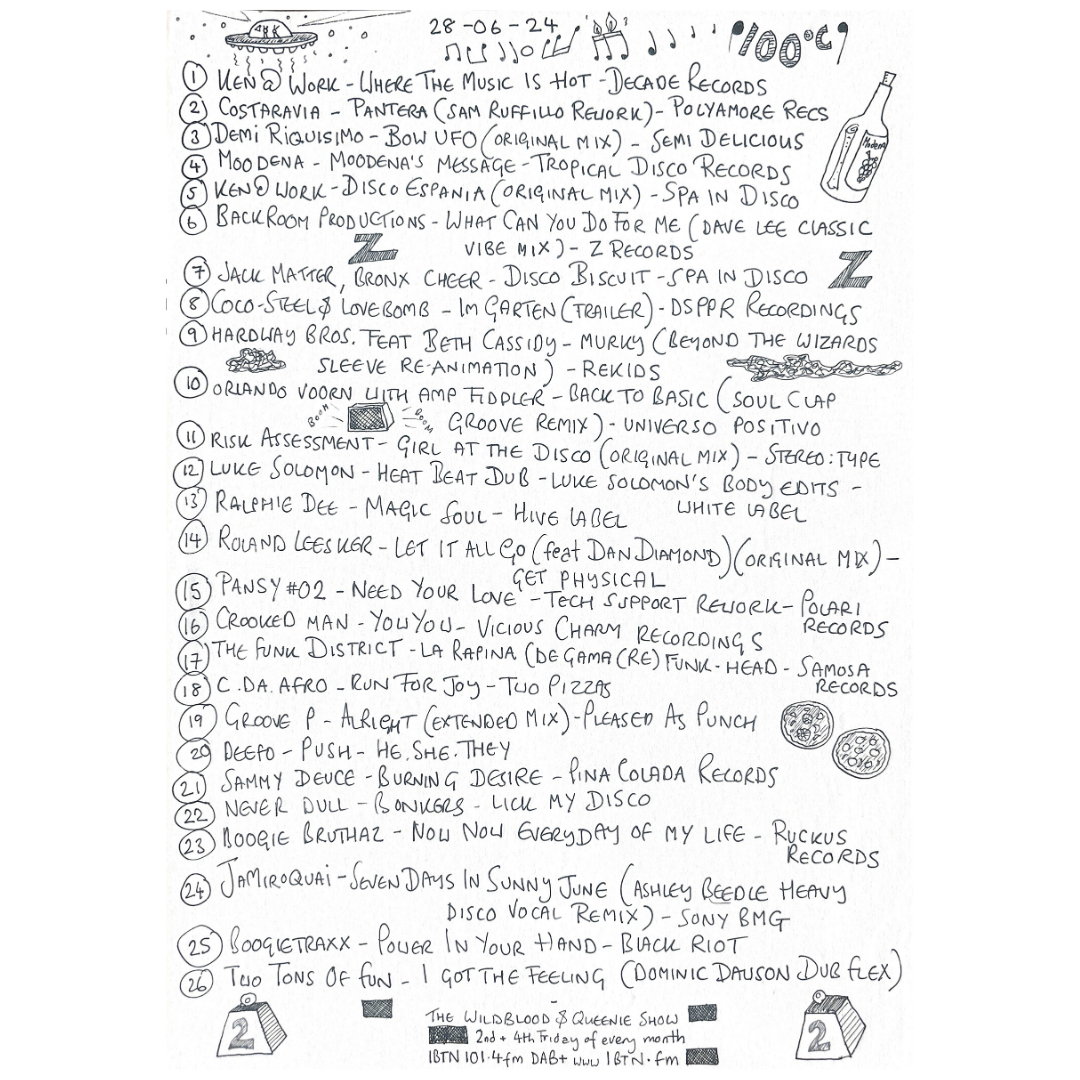 28-06-24
100°C
① KEN@WORK - WHERE THE MUSIC IS HOT - DECADE RECORDS
② COSTARAVIA - PANTERA (SAM RUFFILLO REWORK) - POLYAMORE RECS
③ DEMI RIQUISIMO - BOW UFO (ORIGINAL MIX) - SEMI DELICIOUS
④ MOODENA - MOODENA'S MESSAGE - TROPICAL DISCO RECORDS
Modena
⑤ KEN@WORK - DISCO ESPANIA (ORIGINAL MIX) - SPA IN DISCO
⑥ BACKROOM PRODUCTIONS - WHAT CAN YOU DO FOR ME (DAVE LEE CLASSIC
Z VIBE MIX) - Z RECORDS
⑦ JACK MATTER, BRONX CHEER - DISCO BISCUIT - SPA IN DISCO Z
⑧ COCO-STEEL & LOVEBOMB - IM GARTEN (TRAILER) - DSPPR RECORDINGS
⑨ HARDWAY BROS. FEAT BETH CASSIDY - MURKY (BEYOND THE WIZARDS
SLEEVE RE-ANIMATION) - REKIDS
⑩ ORLANDO VOORN WITH AMP FIDDLER - BACK TO BASIC (SOUL CLAP
BOOM BOOM GROOVE REMIX) - UNIVERSO POSITIVO
⑪ RISK ASSESSMENT - GIRL AT THE DISCO (ORIGINAL MIX) - STEREO:TYPE
⑫ LUKE SOLOMON - HEAT BEAT DUB - LUKE SOLOMON'S BODY EDITS -
WHITE LABEL
⑬ RALPHIE DEE - MAGIC SOUL - HIVE LABEL
⑭ ROLAND LEESKER - LET IT ALL GO (feat DAN DIAMOND) (ORIGINAL MIX) -
GET PHYSICAL
⑮ PANSY #02 - NEED YOUR LOVE - TECH SUPPORT REWORK - POLARI
RECORDS
⑯ CROOKED MAN - YOU YOU - VICIOUS CHARM RECORDINGS
⑰ THE FUNK DISTRICT - LA RAPINA (DE GAMA (RE) FUNK-HEAD - SAMOSA
RECORDS
⑱ C.DA.AFRO - RUN FOR JOY - TWO PIZZAS
⑲ GROOVE P - ALRIGHT (EXTENDED MIX) - PLEASED AS PUNCH
⑳ DEEFO - PUSH - HE.SHE.THEY
㉑ SAMMY DEUCE - BURNING DESIRE - PINA COLADA RECORDS
㉒ NEVER DULL - BONKERS - LICK MY DISCO
㉓ BOOGIE BRUTHAZ - NOW NOW EVERYDAY OF MY LIFE - RUCKUS
RECORDS
㉔ JAMIROQUAI - SEVEN DAYS IN SUNNY JUNE (ASHLEY BEEDLE HEAVY
DISCO VOCAL REMIX) - SONY BMG
㉕ BOOGIETRAXX - POWER IN YOUR HAND - BLACK RIOT
㉖ TWO TONS OF FUN - I GOT THE FEELING (DOMINIC DAWSON DUB FLEX)
2 THE WILDBLOOD & QUEENIE SHOW 2
2nd + 4th Friday of every month
1BTN 101.4fm DAB+ www 1BTN.fm